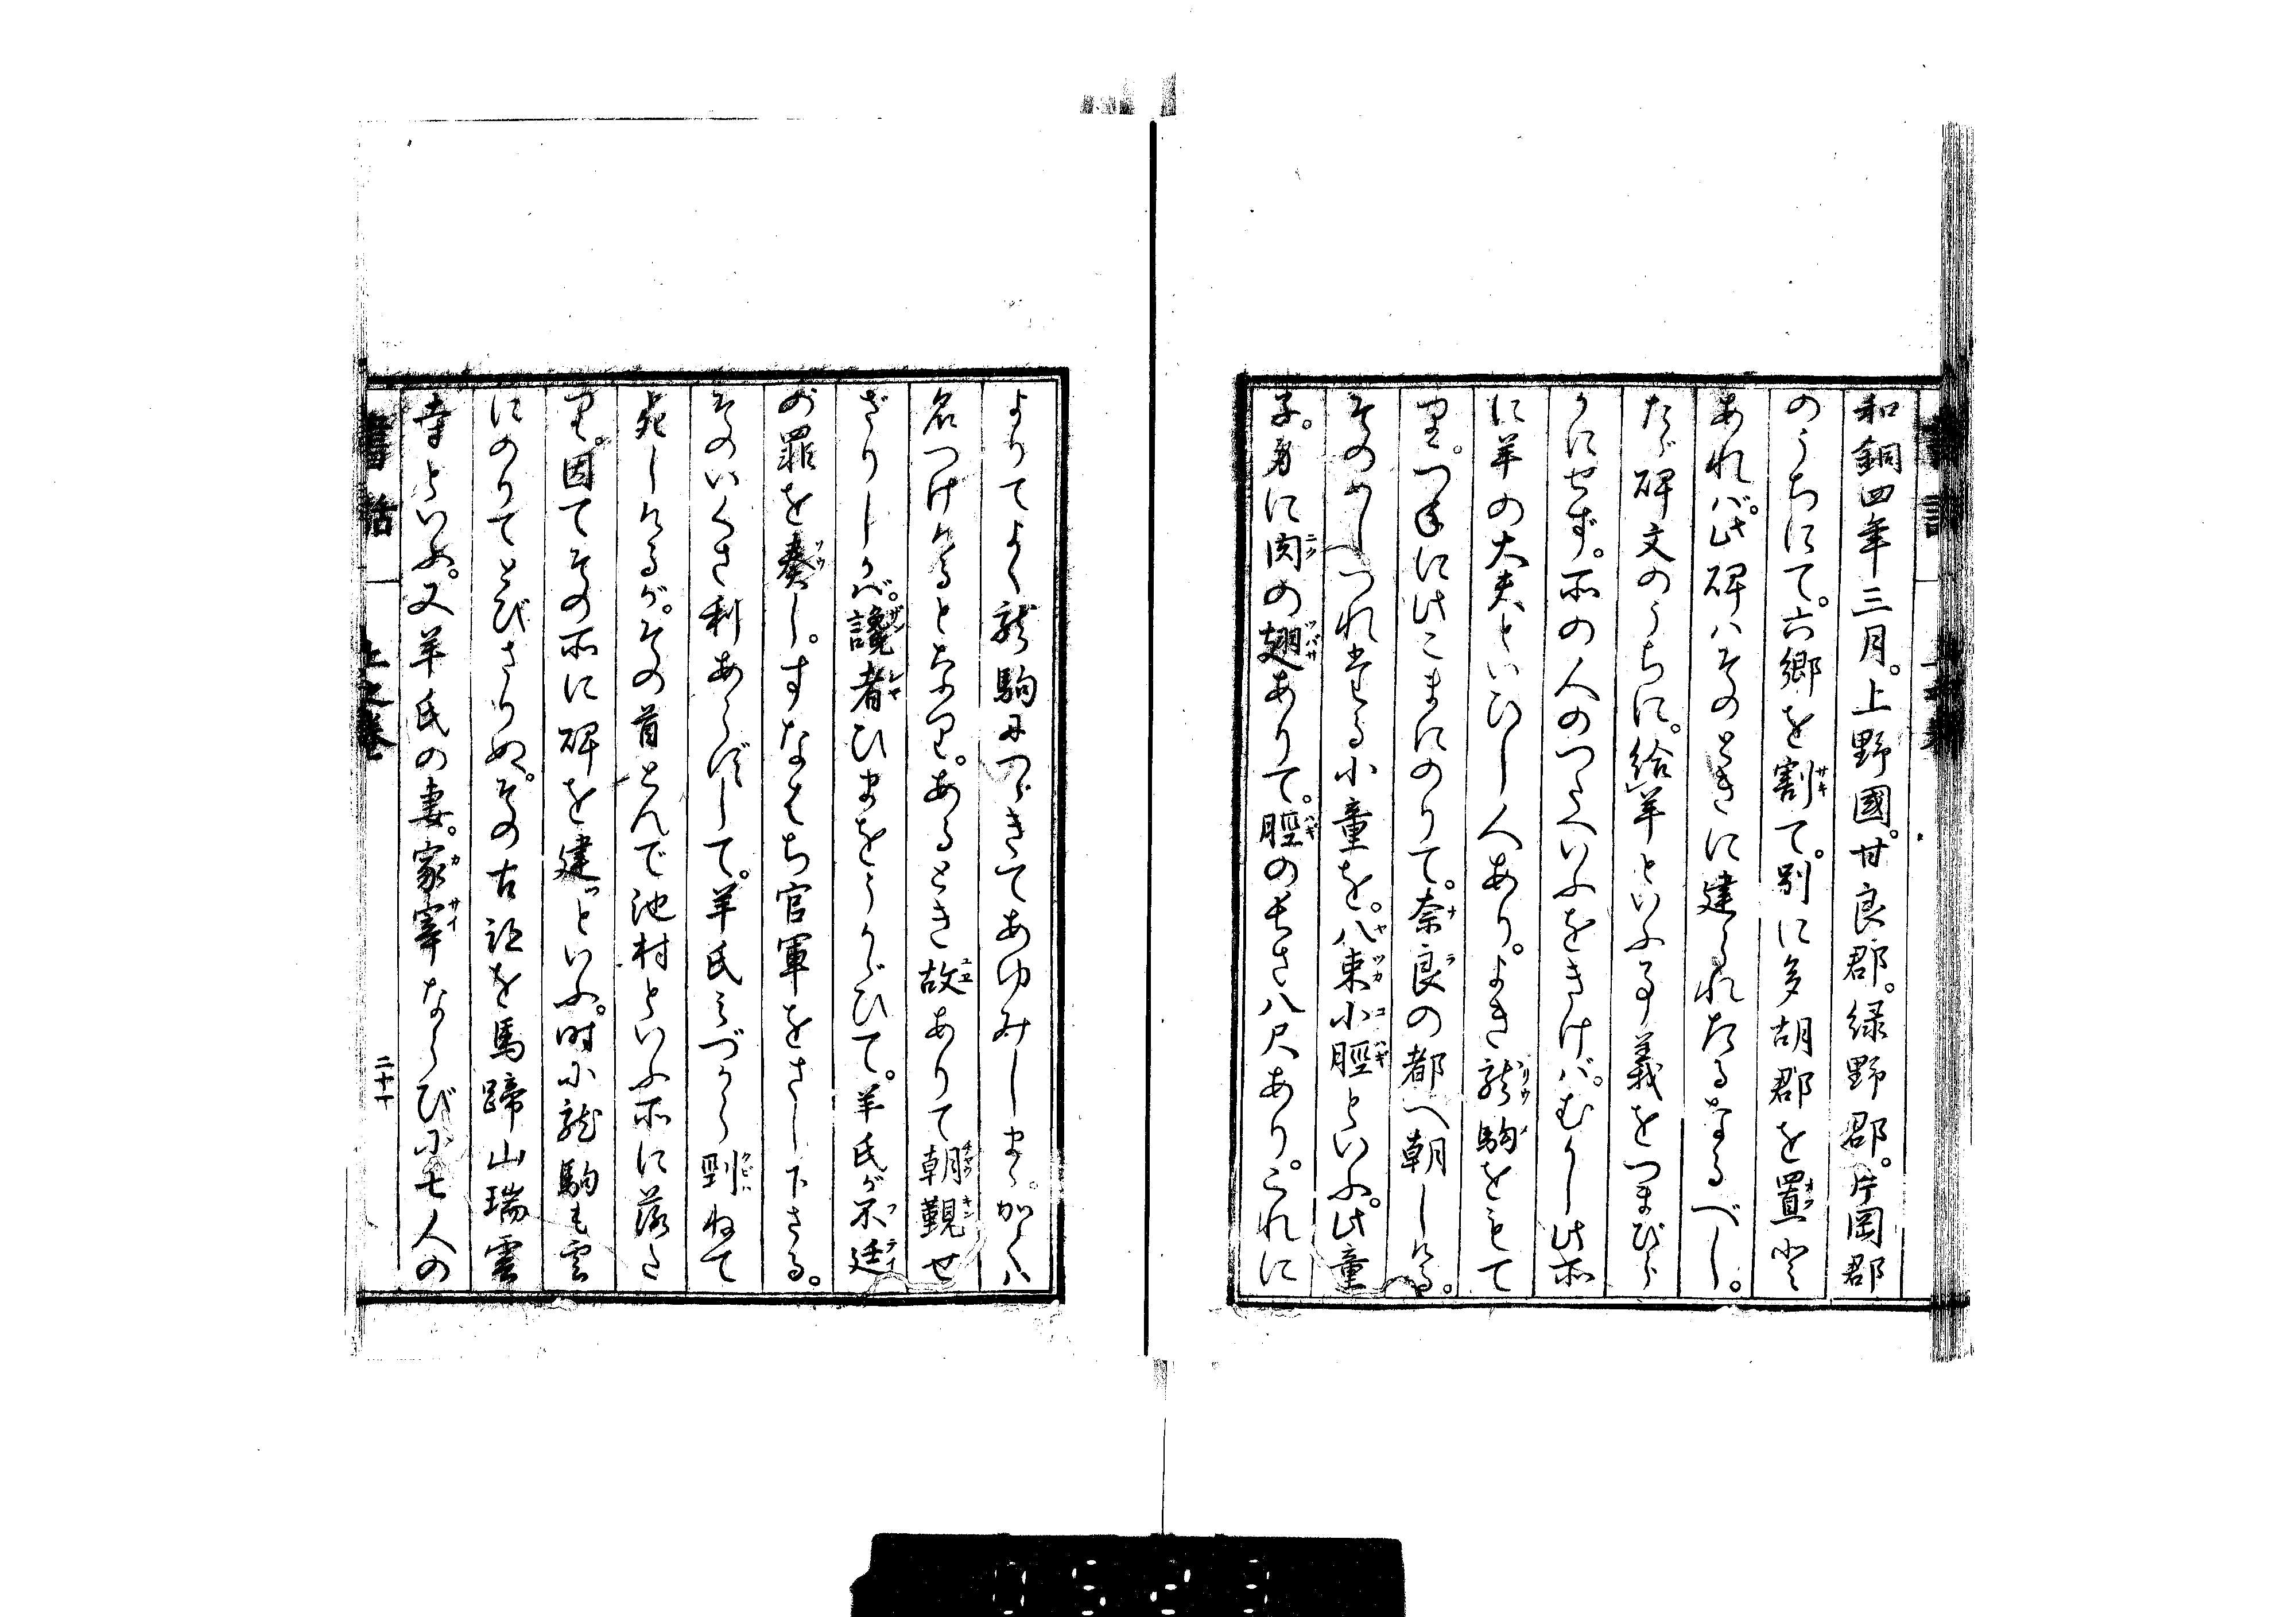 和銅四年三月。上野國。甘良郡。緑野郡。片岡郡
のうちにて。六郷を割て。別に多胡郡を置と
あれバ。此碑ハそのときに建られたるなるべし。
たゞ碑文のうちに。給羊といふ事義をつまびら
かにせず。所の人のつたへいふをきけバ。むかし此所
に羊の大夫といひし人あり。よき龍駒をもて
り。つねに此こまにのりて。奈良の都へ朝しける。
そのめしつれたる小童を。八束小脛といふ。此童
子。身に肉の翅ありて。脛の長さ八尺あり。これに
よりてよく龍駒につゞきてあゆみしまゝ。かくハ
名つけけるとなり。あるとき故ありて朝覲せ
ざりしかバ。讒者ひまをうかゞひて。羊氏が不廷
の罪を奏し。すなはち官軍をさし下さる。
そのいくさ利あらずして。羊氏みづから刎ねて
死しけるが。その首とんで池村といふ所に落た
り。因てその所に碑を建つといふ。時に龍駒も雲
にのりてとびさりぬ。その古跡を馬蹄山瑞雲
寺といふ。又羊氏の妻。家宰ならびに七人の
書話 上之巻 二十